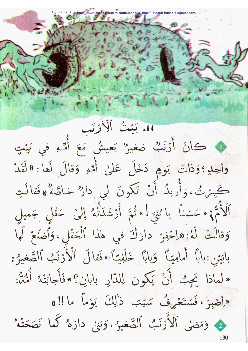 14. بَيْتُ ٱلْأَرْنَبِ
1 كَانَ أَرْنَبٌ صَغِيرٌ يَعِيشُ مَعَ أُمِّهِ فِي بَيْتٍ
وَاحِدٍ؛ وَذَاتَ يَوْمٍ دَخَلَ عَلَى أُمِّهِ وَقَالَ لَهَا: «لَقَدْ
كَبِرْتُ، وَأُرِيدُ أَنْ تَكُونَ لِي دَارٌ خَاصَّةٌ» فَقَالَتِ
ٱلْأُمُّ: «حَسَناً يَا بُنَيَّ!» ثُمَّ أَرْشَدَتْهُ إِلَى حَقْلٍ جَمِيلٍ
وَقَالَتْ لَهُ: «اِحْفِرْ دَارَكَ فِي هَذَا ٱلْحَقْلِ، وَٱصْنَعْ لَهَا
بَابَيْنِ: بَاباً أَمَامِيّاً وَبَاباً خَلْفِيّاً» فَقَالَ ٱلْأَرْنَبُ ٱلصَّغِيرُ:
«لِمَاذَا يَجِبُ أَنْ يَكُونَ لِلدَّارِ بَابَانِ؟» فَأَجَابَتْهُ أُمُّهُ:
«اِصْبِرْ، فَسَتَعْرِفُ سَبَبَ ذَلِكَ يَوْماً مَا!!»
2 وَمَضَى ٱلْأَرْنَبُ ٱلصَّغِيرُ، وَبَنَى دَارَهُ كَمَا نَصَحَتْهُ